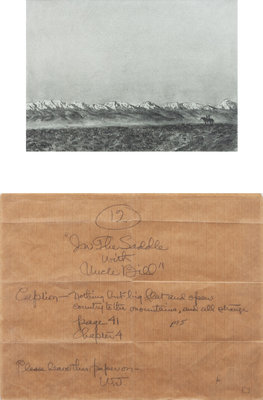 12
"In The Saddle
with
Uncle Bill"
Caption - nothing but big, flat and open
country to the mountains, and all strange
page 41
Chapter 4
Please leave this paper on -